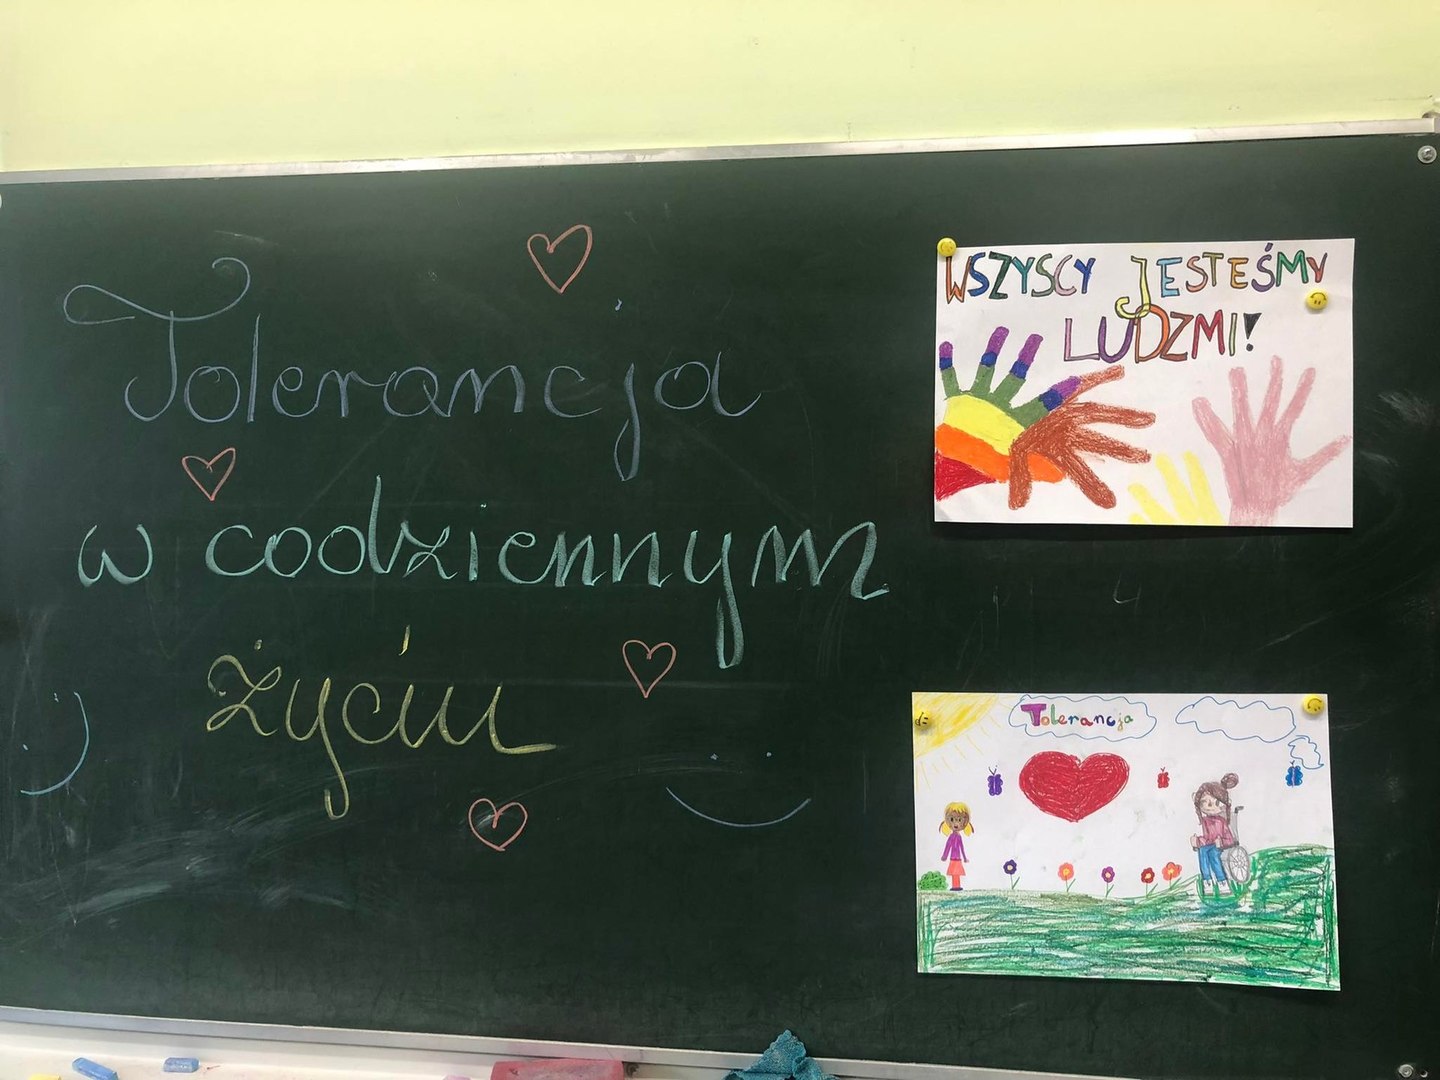 Tolerancja
w codziennym
życiu
WSZYSCY JESTEŚMY
LUDZMI!
Tolerancja